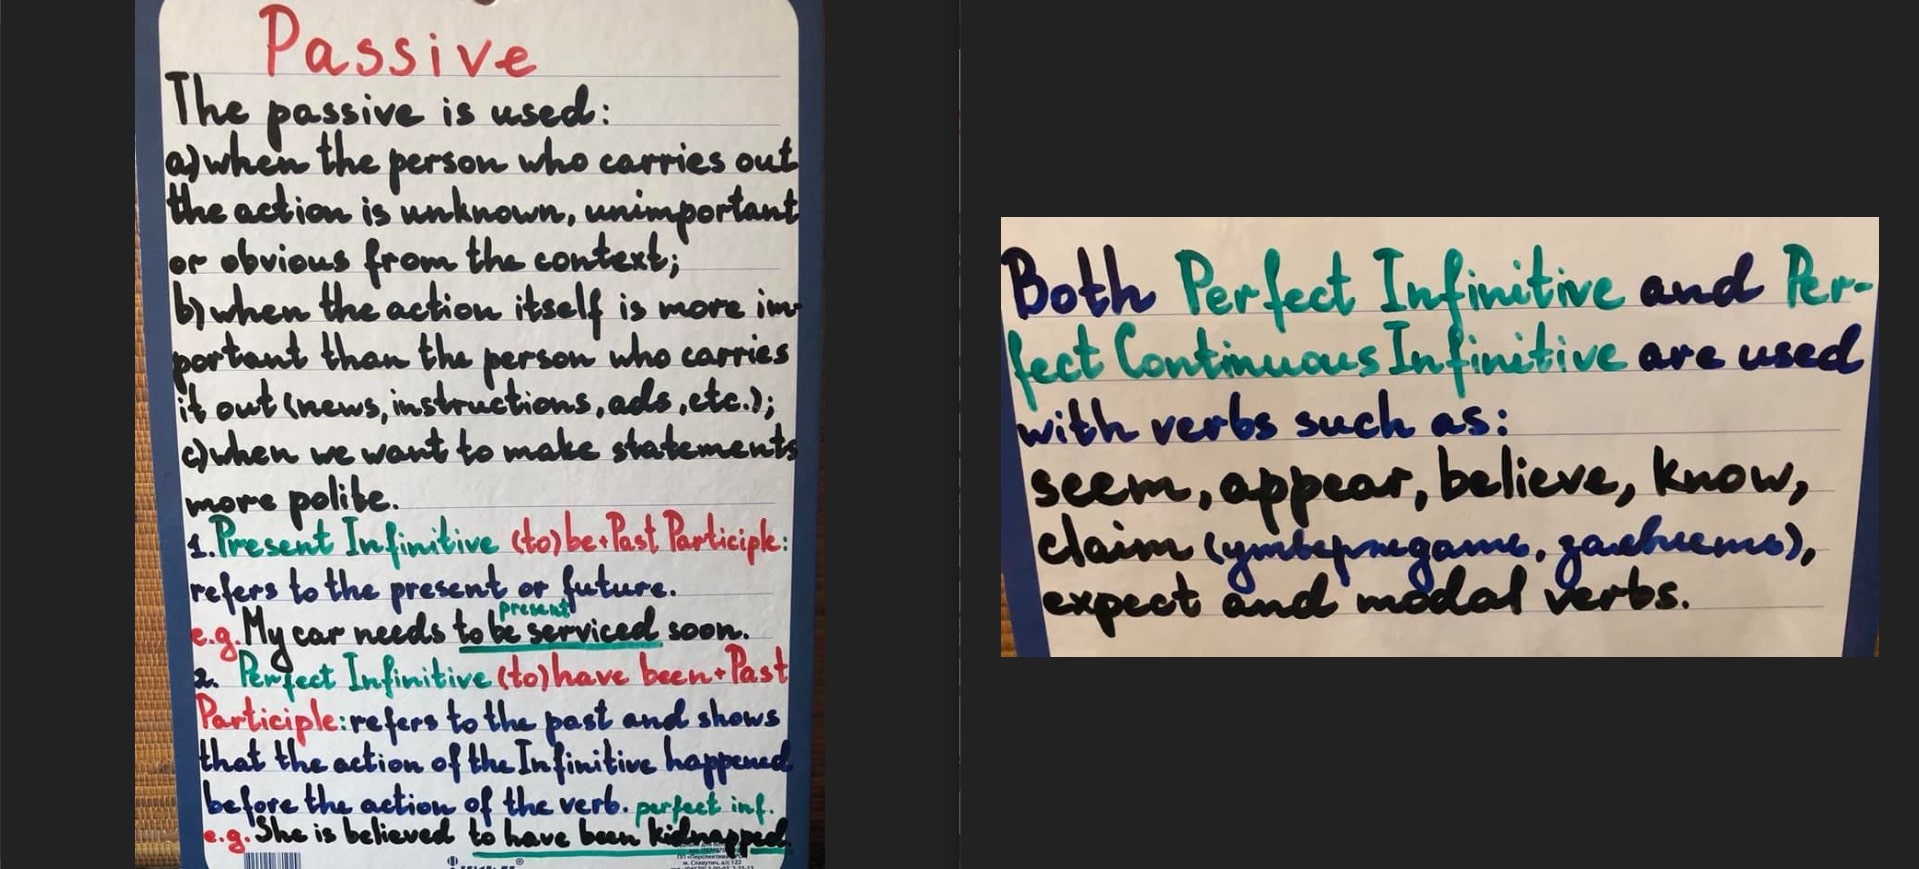 Passive
The passive is used:
a) when the person who carries out
the action is unknown, unimportant
or obvious from the context;
b) when the action itself is more im-
portant than the person who carries
it out (news, instructions, ads, etc.);
c) when we want to make statements
more polite.
1. Present Infinitive (to) be + Past Participle:
refers to the present or future.
present
e.g. My car needs to be serviced soon.
2. Perfect Infinitive (to) have been + Past
Participle: refers to the past and shows
that the action of the Infinitive happened
before the action of the verb. perfect inf.
e.g. She is believed to have been kidnapped.
м. Славутич, а/с 122
Both Perfect Infinitive and Per-
fect Continuous Infinitive are used
with verbs such as:
seem, appear, believe, know,
claim (утверждать, заявлять),
expect and modal verbs.